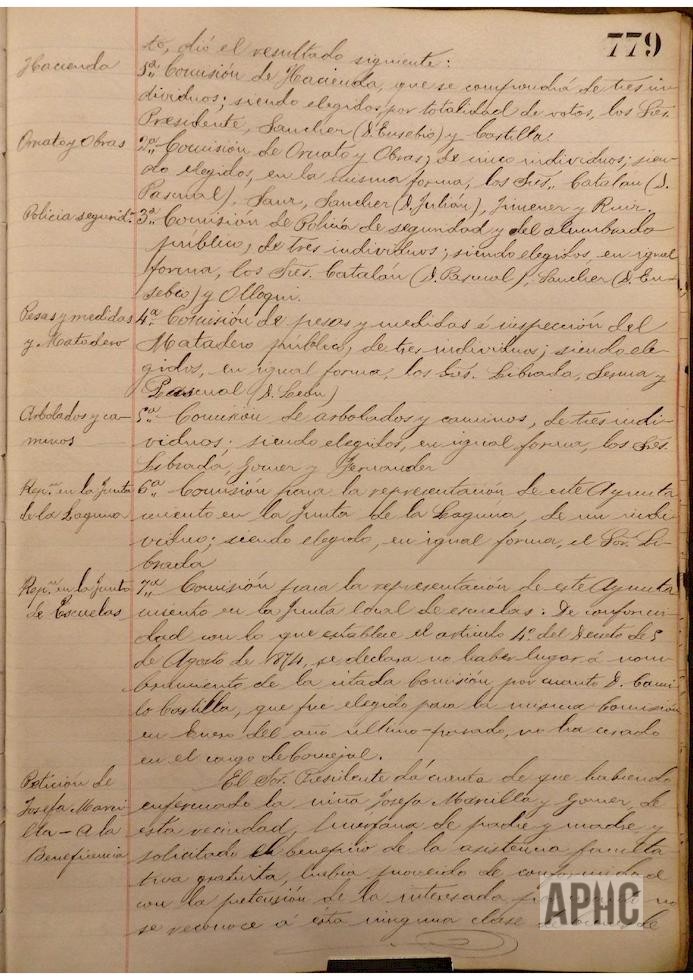 779
to, dió el resultado siguiente:
Hacienda
1ª Comisión de Hacienda, que se compondrá de tres in-
dividuos; siendo elegidos por totalidad de votos, los Sres.
Presidente, Sancher (D. Eusebio) y Castilla.
Ornato y Obras
2ª Comisión de Ornato y Obras, de cinco individuos; sien-
do elegidos, en la misma forma, los Sres. Catalán (D.
Pascual), Sanz, Sancher (D. Julián), Jimener y Ruiz.
Policia segurid.
3ª Comisión de Policía de seguridad y del alumbrado
público, de tres individuos; siendo elegidos, en igual
forma, los Sres. Catalán (D. Pascual), Sancher (D. Eu-
sebio) y Olloqui.
Pesas y medidas
y Matadero
4ª Comisión de pesas y medidas é inspección del
Matadero público, de tres individuos; siendo ele-
gidos, en igual forma, los Sres. Librada, Sesma y
Pascual (D. León)
Arbolados y ca-
minos
5ª Comisión de arbolados y caminos, de tres indi-
viduos; siendo elegidos, en igual forma, los Sres.
Librada, Gomer y Fernander
Repn. en la Junta
de la Laguna
6ª Comisión para la representación de este Ayunta
miento en la Junta de la Laguna, de un indi-
viduo; siendo elegido, en igual forma, el Sor. Li-
brada
Repn. en la Junta
de Escuelas
7ª Comisión para la representación de este Ayunta
miento en la Junta local de escuelas: De conformi-
dad con lo que establece el artículo 4º del Decreto de 5
de Agosto de 1874, se declara no haber lugar á nom-
bramiento de la citada Comisión por cuanto D. Cami-
lo Castilla, que fue elegido para la misma Comisión
en Enero del año último pasado, no ha cesado
en el cargo de Concejal.
Petición de
Josefa Marci-
lla - A la
Beneficencia
El Sor. Presidente dá cuenta de que habiendo
enfermado la niña Josefa Marcilla y Gomer, de
esta vecindad, huérfana de padre y madre, y
solicitado el beneficio de la asistencia faculta
tiva gratuita, había proveido de conformidad
con la pretensión de la interesada, no
se reconoce á ésta ninguna clase de
APHC